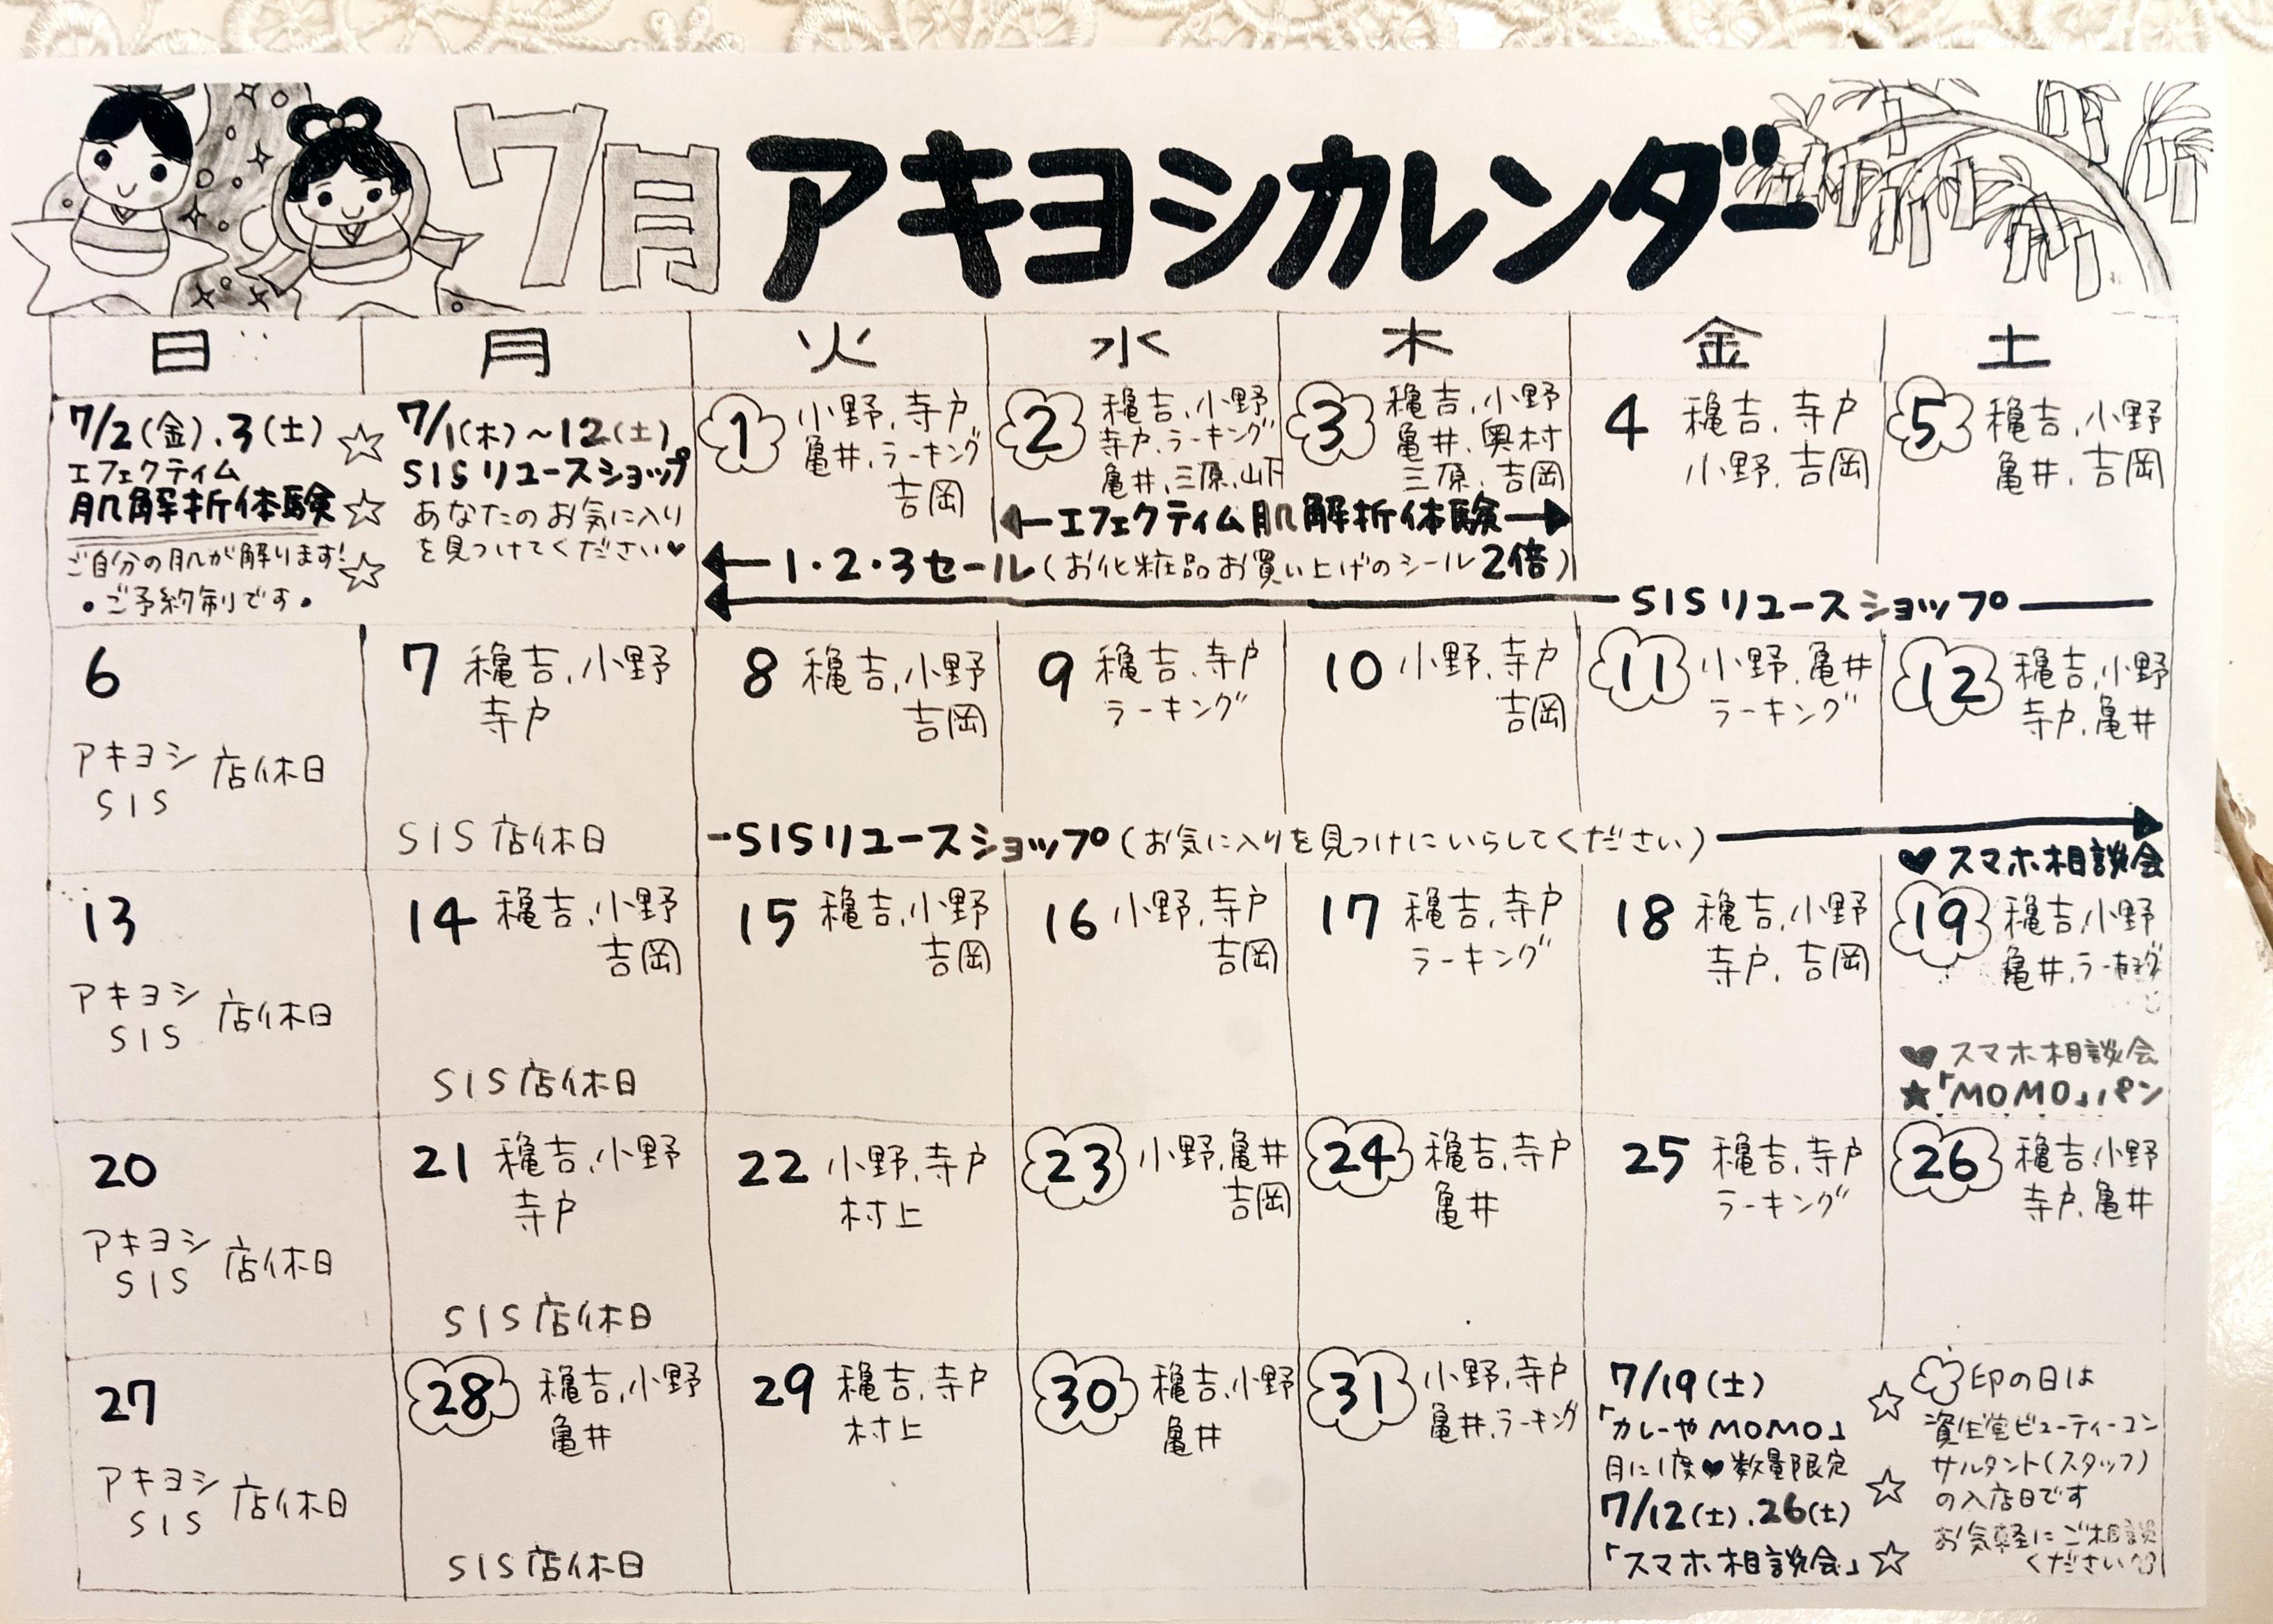 7月 アキヨシカレンダー
日 月 火 水 木 金 土
7/2(金).3(土)
エフェクティム
肌解析体験
ご自分の肌が解ります!
・ご予約制です・
7/1(木)~12(土)
SISリユースショップ
あなたのお気に入り
を見つけてください♥
1 小野.寺戸
亀井.ラーキング
吉岡
2 穐吉.小野
寺戸.ラーキング
亀井.三原.山下
3 穐吉.小野
亀井.奥村
三原.吉岡
4 穐吉.寺戸
小野.吉岡
5 穐吉.小野
亀井.吉岡
←エフェクティム肌解析体験→
←1・2・3セール(お化粧品お買い上げのシール2倍)
←SISリユースショップ
6
アキヨシ
SIS
店休日
7 穐吉.小野
寺戸
SIS店休日
8 穐吉.小野
吉岡
9 穐吉.寺戸
ラーキング
10 小野.寺戸
吉岡
11 小野.亀井
ラーキング
12 穐吉.小野
寺戸.亀井
-SISリユースショップ(お気に入りを見つけにいらしてください)→
♥スマホ相談会
13
アキヨシ
SIS
店休日
14 穐吉.小野
吉岡
SIS店休日
15 穐吉.小野
吉岡
16 小野.寺戸
吉岡
17 穐吉.寺戸
ラーキング
18 穐吉.小野
寺戸.吉岡
19 穐吉.小野
亀井.
♥スマホ相談会
★「MOMO」パン
20
アキヨシ
SIS
店休日
21 穐吉.小野
寺戸
SIS店休日
22 小野.寺戸
村上
23 小野.亀井
吉岡
24 穐吉.寺戸
亀井
25 穐吉.寺戸
ラーキング
26 穐吉.小野
寺戸.亀井
27
アキヨシ
SIS
店休日
28 穐吉.小野
亀井
SIS店休日
29 穐吉.寺戸
村上
30 穐吉.小野
亀井
31 小野.寺戸
亀井.ラーキング
7/19(土)
「カレーやMOMO」
月に1度♥数量限定
7/12(土).26(土)
「スマホ相談会」
印の日は
資生堂ビューティーコン
サルタント(スタッフ)
の入店日です
お気軽にご相談
ください